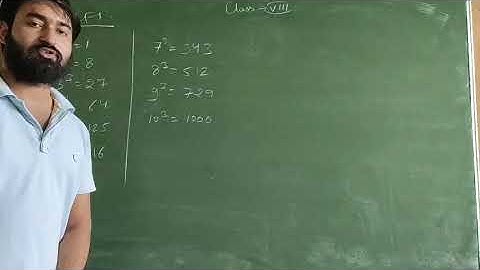 Class - VIII
= 1
= 8
3³ = 27
64
125
16
7³ = 343
8³ = 512
9³ = 729
10³ = 1000